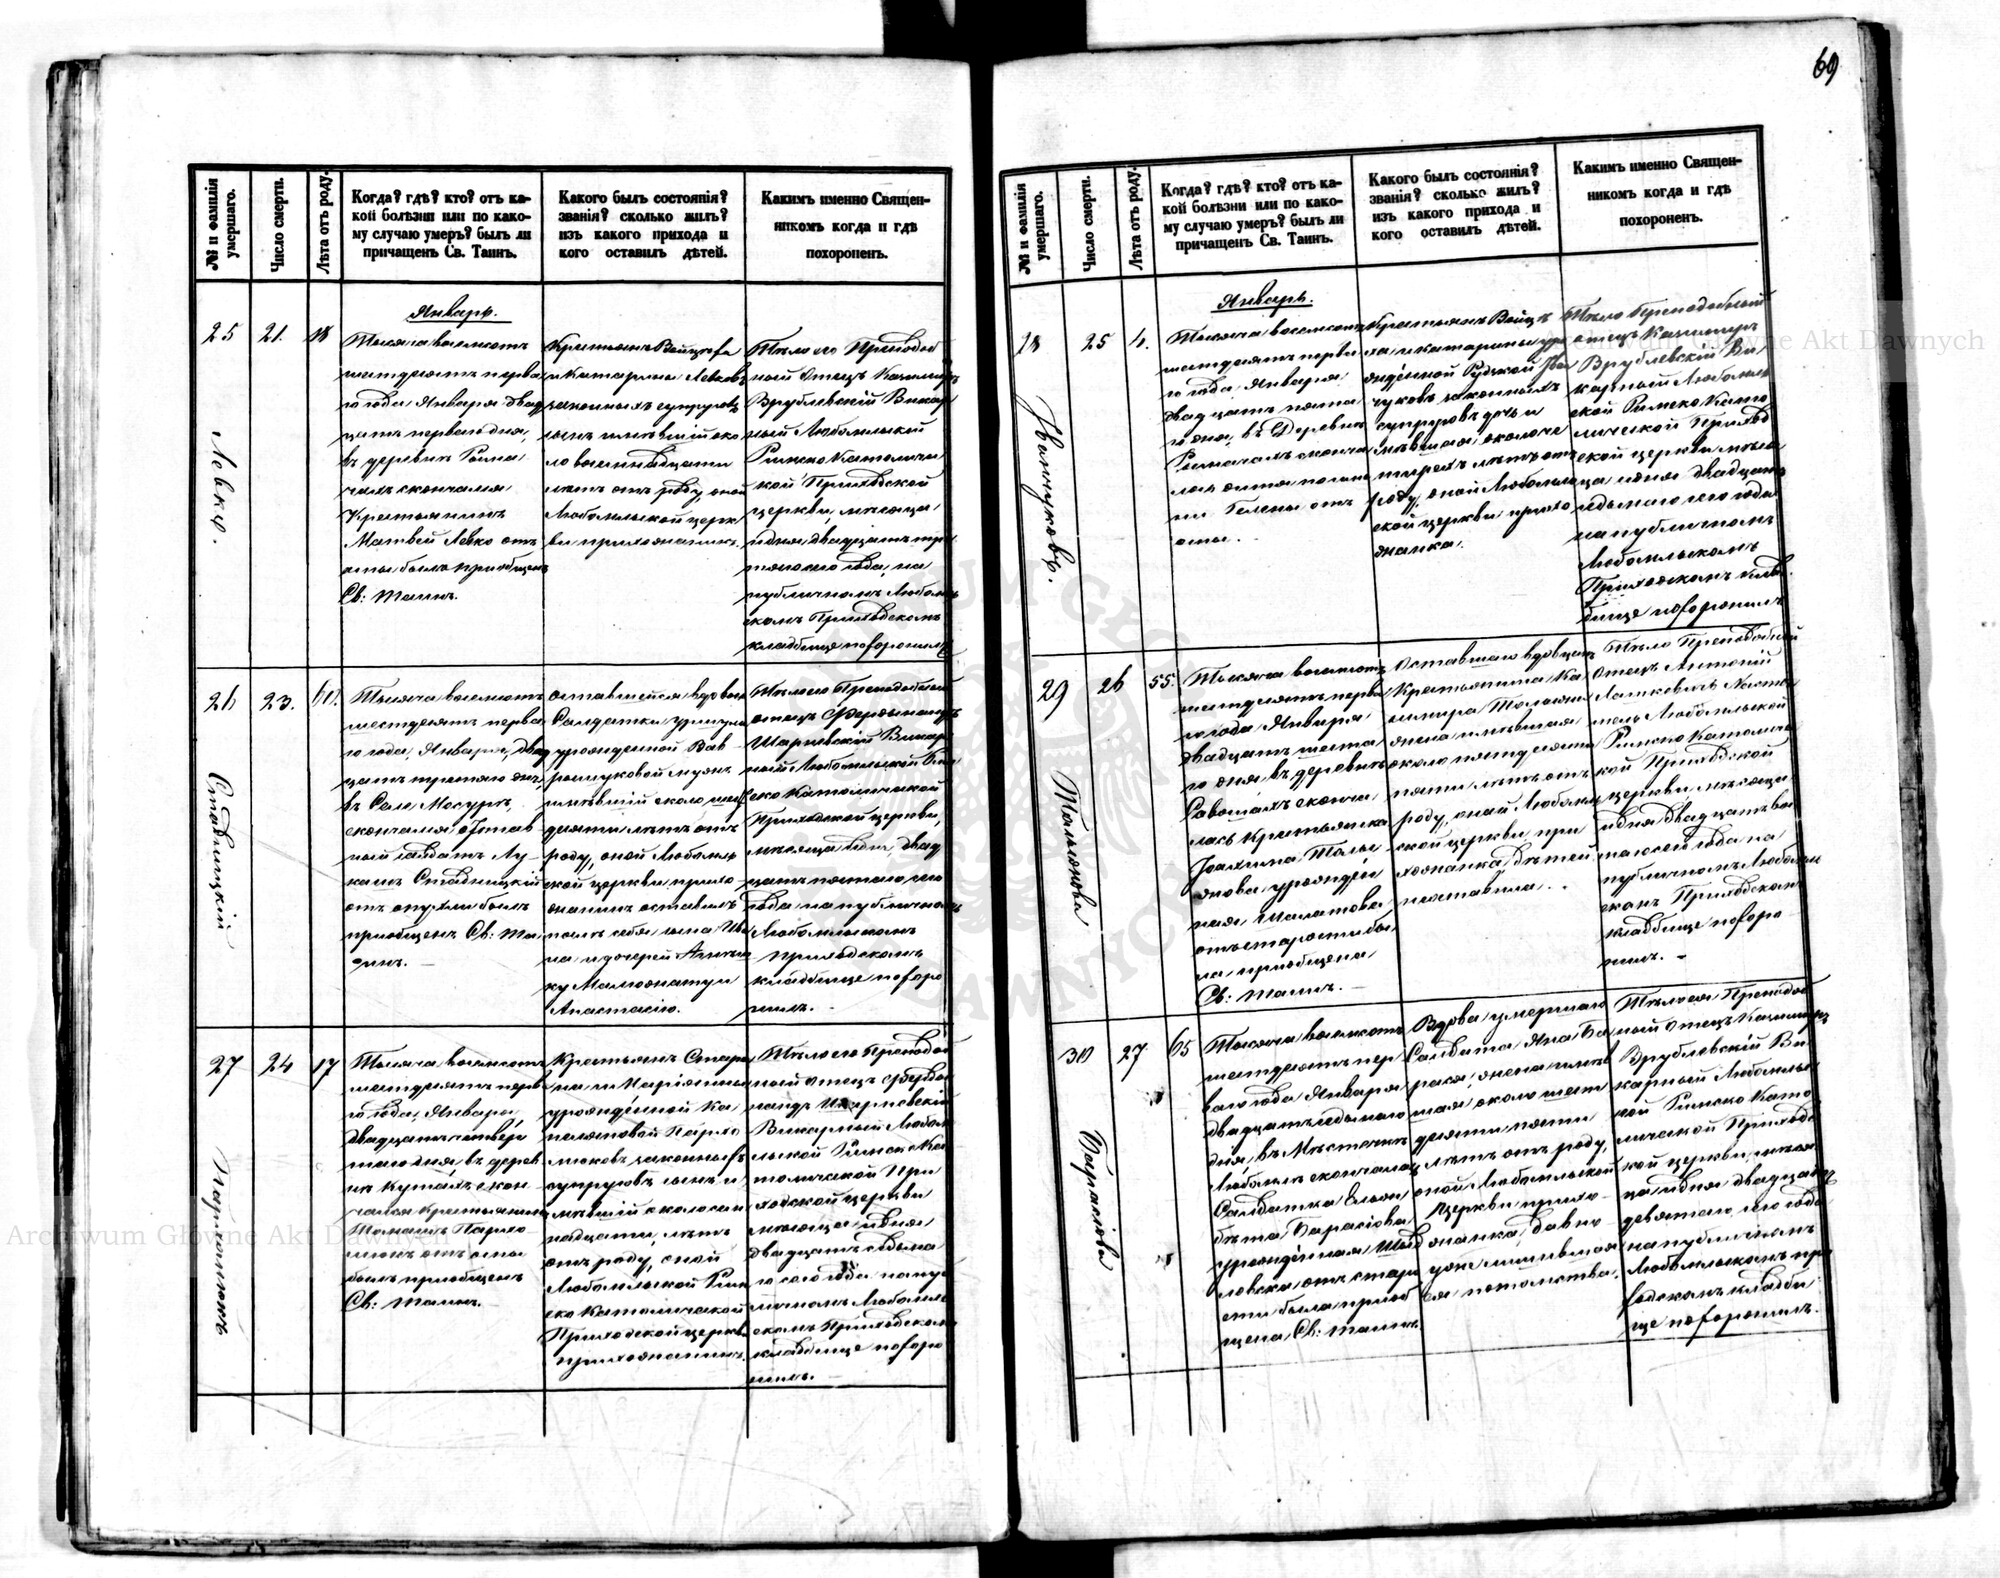 69
№ и фамилія умершаго.
Число смерти.
Лѣта отъ роду.
Когда? гдѣ? кто? отъ ка-
кой болѣзни или по како-
му случаю умеръ? былъ ли
причащенъ Св. Таинъ.
Какого былъ состоянія?
званія? сколько жилъ?
изъ какого прихода и
кого оставилъ дѣтей.
Какимъ именно Священ-
никомъ когда и гдѣ
похороненъ.
Январь.
25
21.
18
Левко.
Тысяча восемсотъ
шестдесятъ перва
го года Января двад
цать перваго дня,
въ деревнѣ Рыма
чахъ скончался
Крестьянинъ
Матвей Левко отъ
оспы былъ приобщенъ
Св: Таинъ.
Крестьянъ Войцеха
и Катарины Левковъ
законныхъ супруговъ
сынъ имѣвшій око
ло восемнадцати
лѣтъ отъ роду, оной
Любомльской церк
ви прихожанинъ.
Тѣло его Преподоб
ный Отецъ Казимиръ
Врублевскій Викар
ный Любомльскій
Римско Католиче
кой Приходской
церкви, мѣсяца
и дня двадцать тре
тяго сего года, на
публичномъ Любомль
скомъ Приходскомъ
кладбище похоронилъ
26
23.
60.
Ставницкій
Тысяча восемсотъ
шестдесятъ перва
го года, Января, двад
цать третяго дня,
въ Селе Мосуръ,
скончался Отстав
ный солдатъ Лу
кашъ Ставницкій
отъ опухли былъ
приобщенъ Св: Та
инъ.
оставшейся вдовы
Солдатки
урожденной Вав
ринуковой мужъ
имѣвшій около шес
дяти лѣтъ отъ
роду, оной Любомль
ской церкви прихо
жанинъ оставилъ
послѣ себя сына Ива
на и дочерей Агнѣш
ку Малгожату и
Анастасію.
Тѣло его Преподобный
отецъ Фердынандъ
Шарневскій Викар
ный Любомльской Рим
ско Католической
Приходской церкви,
мѣсяца и дня двад
цать пятаго сего
года на публичномъ
Любомльскомъ
приходскомъ
кладбище похоро
нилъ.
27
24
17
Пархомюкъ
Тысяча восемсотъ
шестдесятъ перва
го года, Января,
двадцать четвер
таго дня, въ дерев
нѣ Кутахъ скон
чался Крестьянинъ
Томашъ Пархо
мюкъ отъ оспы
былъ приобщенъ
Св: Таинъ.
Крестьянъ
на и Маріянны
урожденной Ка
Пархо
мюковъ законныхъ
супруговъ сынъ и
мѣвшій около сем
надцати, лѣтъ
отъ роду, оной
Любомльской Рим
ско Католической
Приходской церкви
прихожанинъ.
Тѣло его Преподоб
ный отецъ Ферды
нандъ Шарневскій
Викарный Любом
льской Римско Ка
толической При
ходской церкви
мѣсяца и дня
двадцать седьма
го сего года на пуб
личномъ Любомль
скомъ Приходском
кладбище похоро
нилъ.
№ и фамилія умершаго.
Число смерти.
Лѣта отъ роду.
Когда? гдѣ? кто? отъ ка-
кой болѣзни или по како-
му случаю умеръ? былъ ли
причащенъ Св. Таинъ.
Какого былъ состоянія?
званія? сколько жилъ?
изъ какого прихода и
кого оставилъ дѣтей.
Какимъ именно Священ-
никомъ когда и гдѣ
похороненъ.
Январь.
28
25
4.
Иванчукова.
Тысяча восемсотъ
шестдесятъ перва
го года Января
двадцать пята
го дня, въ Деревнѣ
Рымачахъ сконча
лась
Гелены отъ
оспы.
Крестьянъ Войце
ха и Катарины уро
жденной Рудской Иван
чуковъ законныхъ
супруговъ дочь и
мѣвшая около че
тырехъ лѣтъ отъ
роду, оной Любомль
ской церкви прихо
жанка.
Тѣло Преподобный
отецъ Казимиръ
Врублевскій Ви
карный Любомль
ской Римско Като
лической Приход
ской церкви мѣся
ца и дня двадцать
седьмаго сего года
на публичномъ
Любомльскомъ
Приходскомъ клад
бище похоронилъ
29
26
55.
Тысяча восемсотъ
шестдесятъ перва
го года Января
двадцать шеста
го дня въ деревнѣ
сконча
лась Крестьянка
урожден
ная Шалатова
отъ старости бы
ла приобщена
Св: Таинъ.
Оставшаго вдовцемъ
Крестьянина Ка
зимира
жена имѣвшая
около пятдесяти
пяти лѣтъ отъ
роду, оной Любомль
ской церкви при
хожанка дѣтей
неоставила.
Тѣло Преподобный
Отецъ Антоній
Лашкевичъ Насто
тель Любомльской
Римско Католичес
кой Приходской
церкви мѣсяца
и дня двадцать вос
маго сего года на
публичномъ Любомль
скомъ Приходском
кладбище похоро
нилъ.
30
27
65
Барасіова
Тысяча восемсотъ
шестдесятъ пер
ваго года Января
двадцать седьмаго
дня, въ Мѣстечкѣ
Любомлѣ скончалась
Солдатка Елжи
бѣта Барасіова
урожденная
ловска отъ старо
сти была приоб
щена Св: Таинъ.
Вдова умершаго
Солдата Яна Ба
рася жена имѣв
шая около шест
десяти пяти
лѣтъ отъ роду,
оной Любомльской
Церкви прихо
жанка, давно
уже лишившая
ся потомства.
Тѣло ея Преподоб
ный Отецъ Казимиръ
Врублевскій Ви
карный Любомльс
кой Римско Като
лической Приходс
кой церкви, мѣся
ца и дня двадцать
девятаго сего года
на публичномъ
Любомльскомъ при
ходскомъ кладби
ще похоронилъ.
Archiwum Główne Akt Dawnych
Archiwum Główne Akt Dawnych